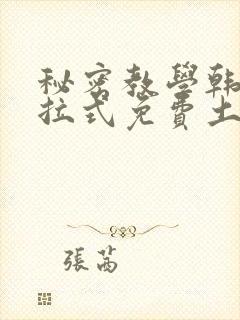 秘密教學韓
拉式免費土
張茜